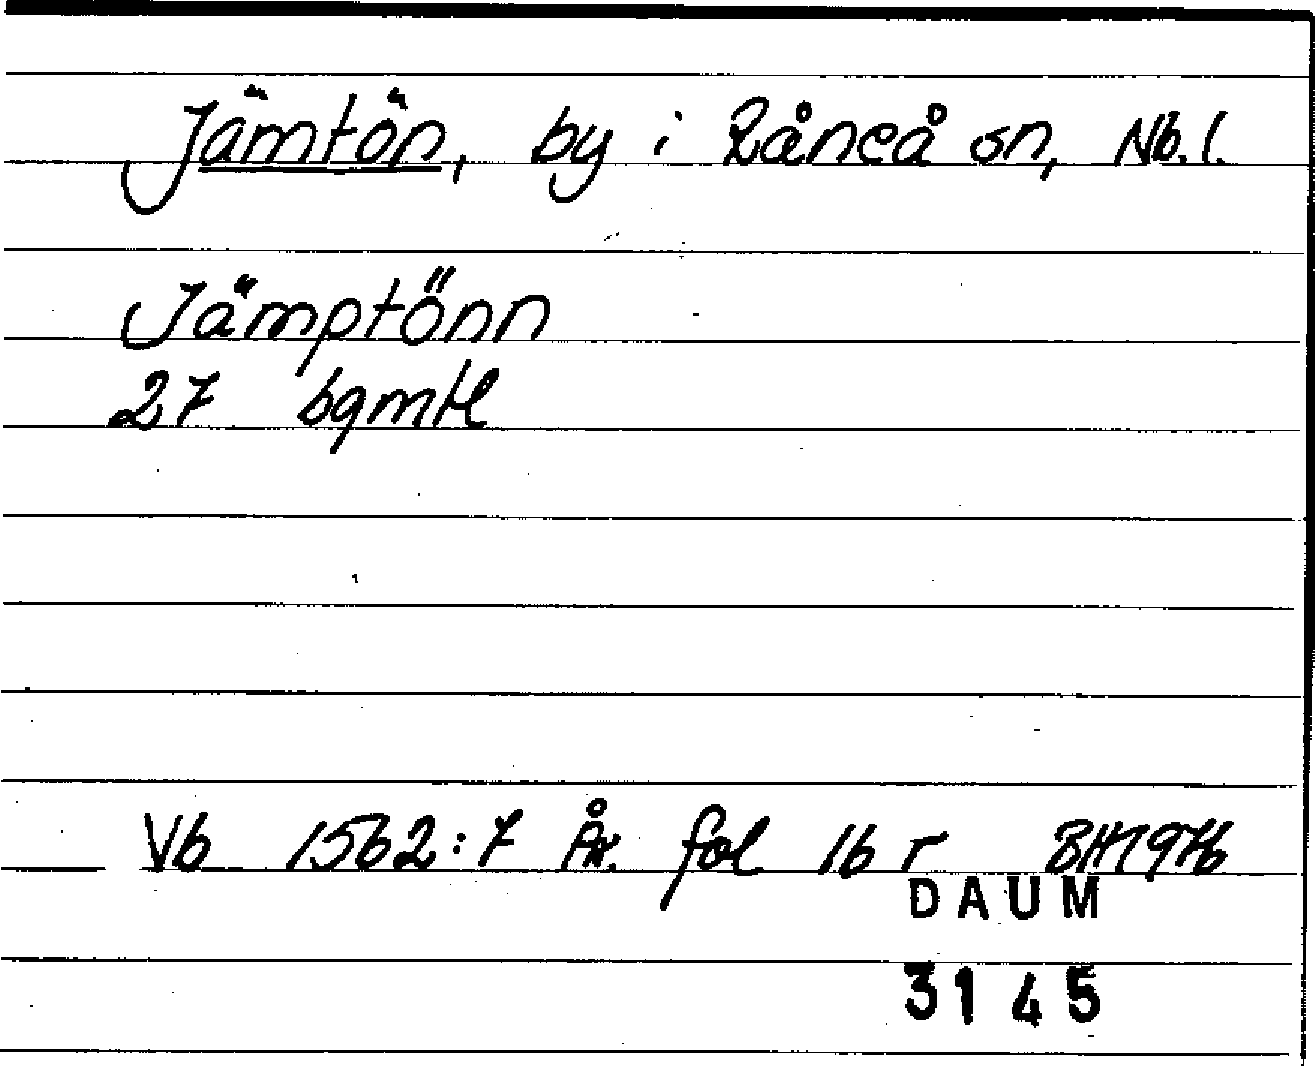 Jämtön, by i Råneå sn, Nb. l.
Jämptönn
27 bgmtl
Vb 1562:7 Är. fol 16 r BH1976
DAUM
3145